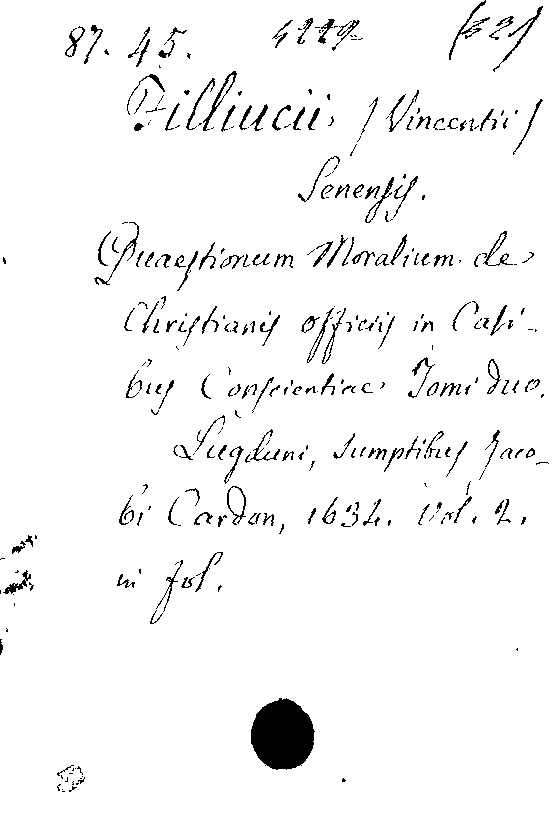 87. 45. 4229 (§ 21)
Filliucii, /Vincentii/
Senensis.
Quaestionum Moralium de
Christianis officiis in Casi-
bus Conscientiae Tomi duo.
Lugduni, sumptibus Jaco-
bi Cardon, 1634. Vol. 2.
in fol.